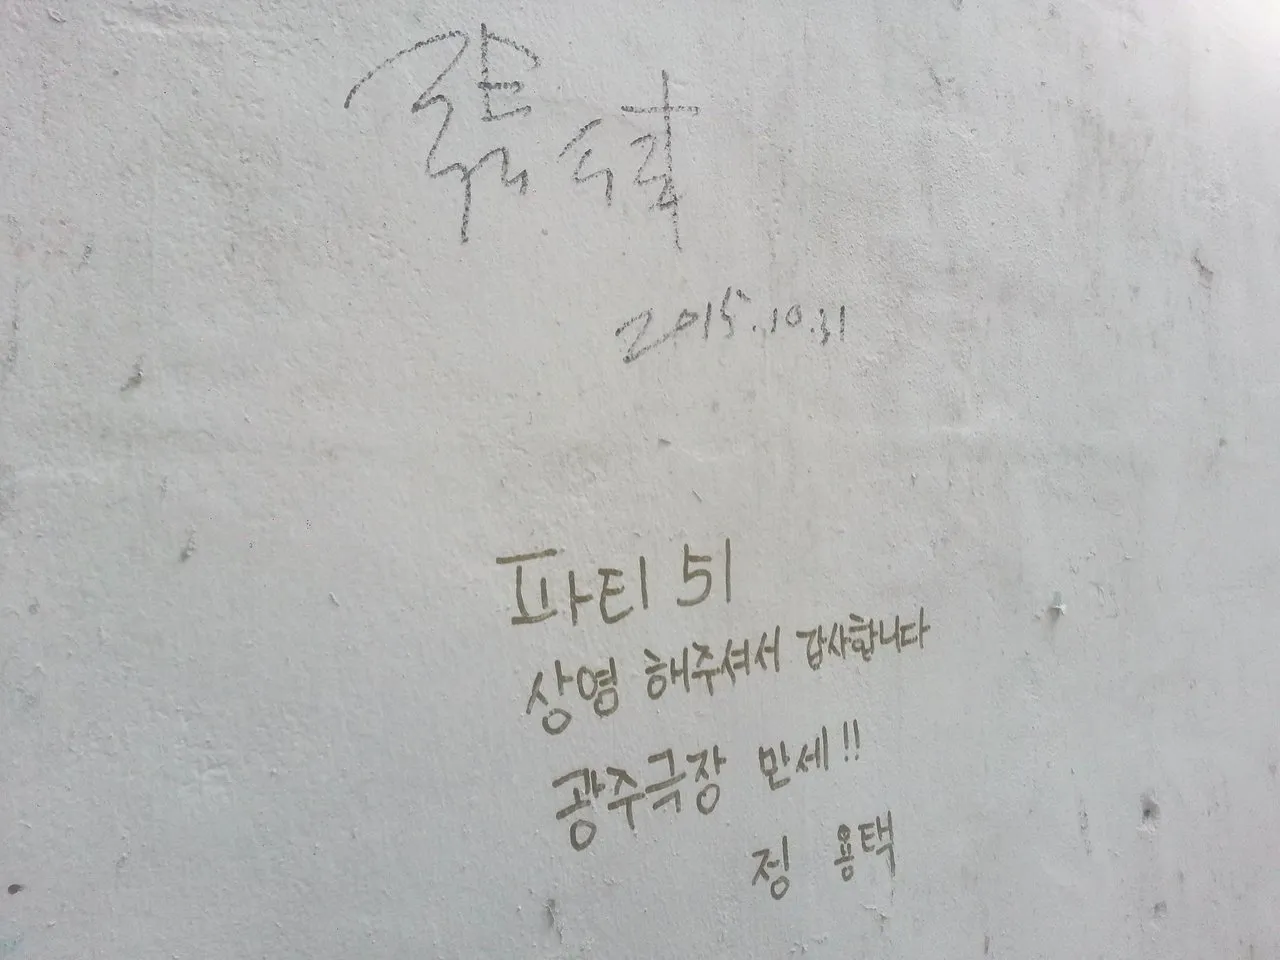 2015.10.31
파티 51
상영 해주셔서 감사합니다
광주극장 만세!!
정 용택